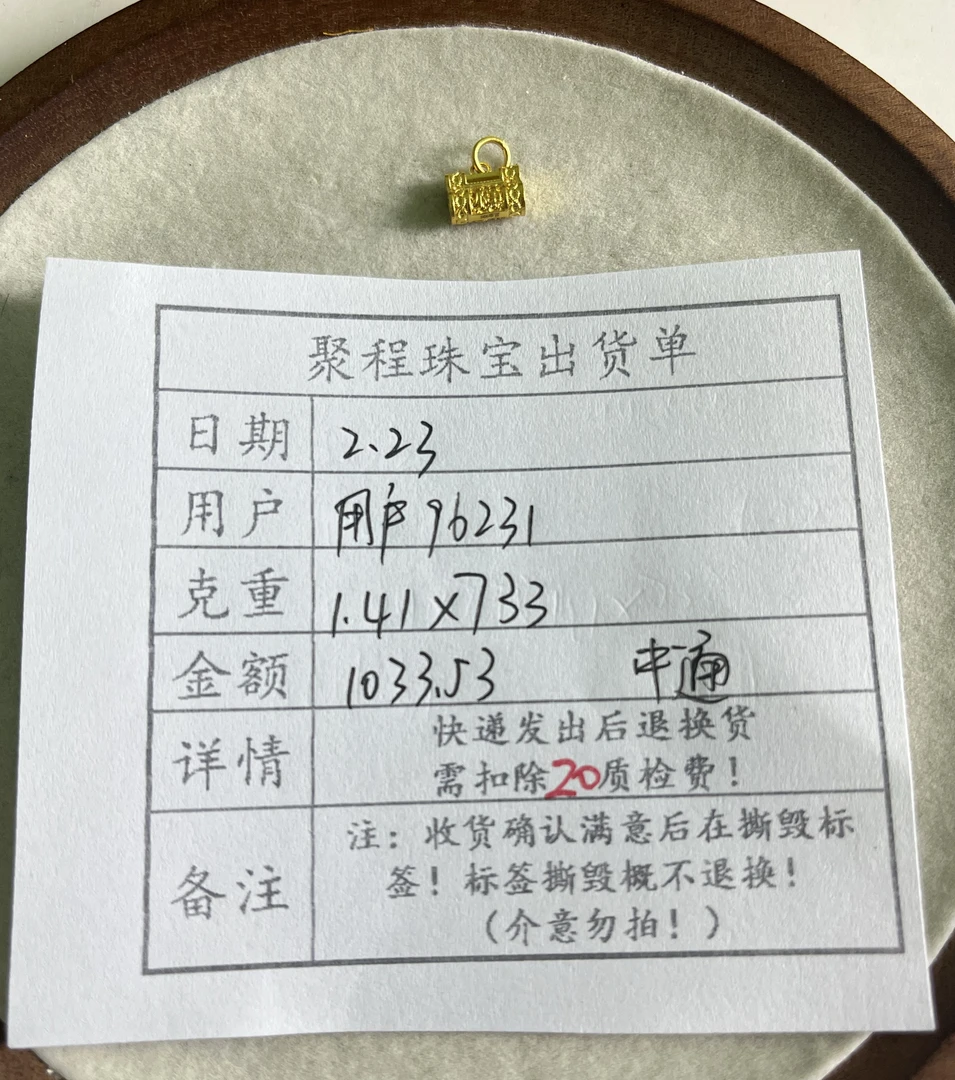 聚程珠宝出货单
日期 2.23
用户 用户96231
克重 1.41×733
金额 1033.53 中通
详情 快递发出后退换货
需扣除20质检费！
备注 注：收货确认满意后在撕毁标
签！标签撕毁概不退换！
（介意勿拍！）